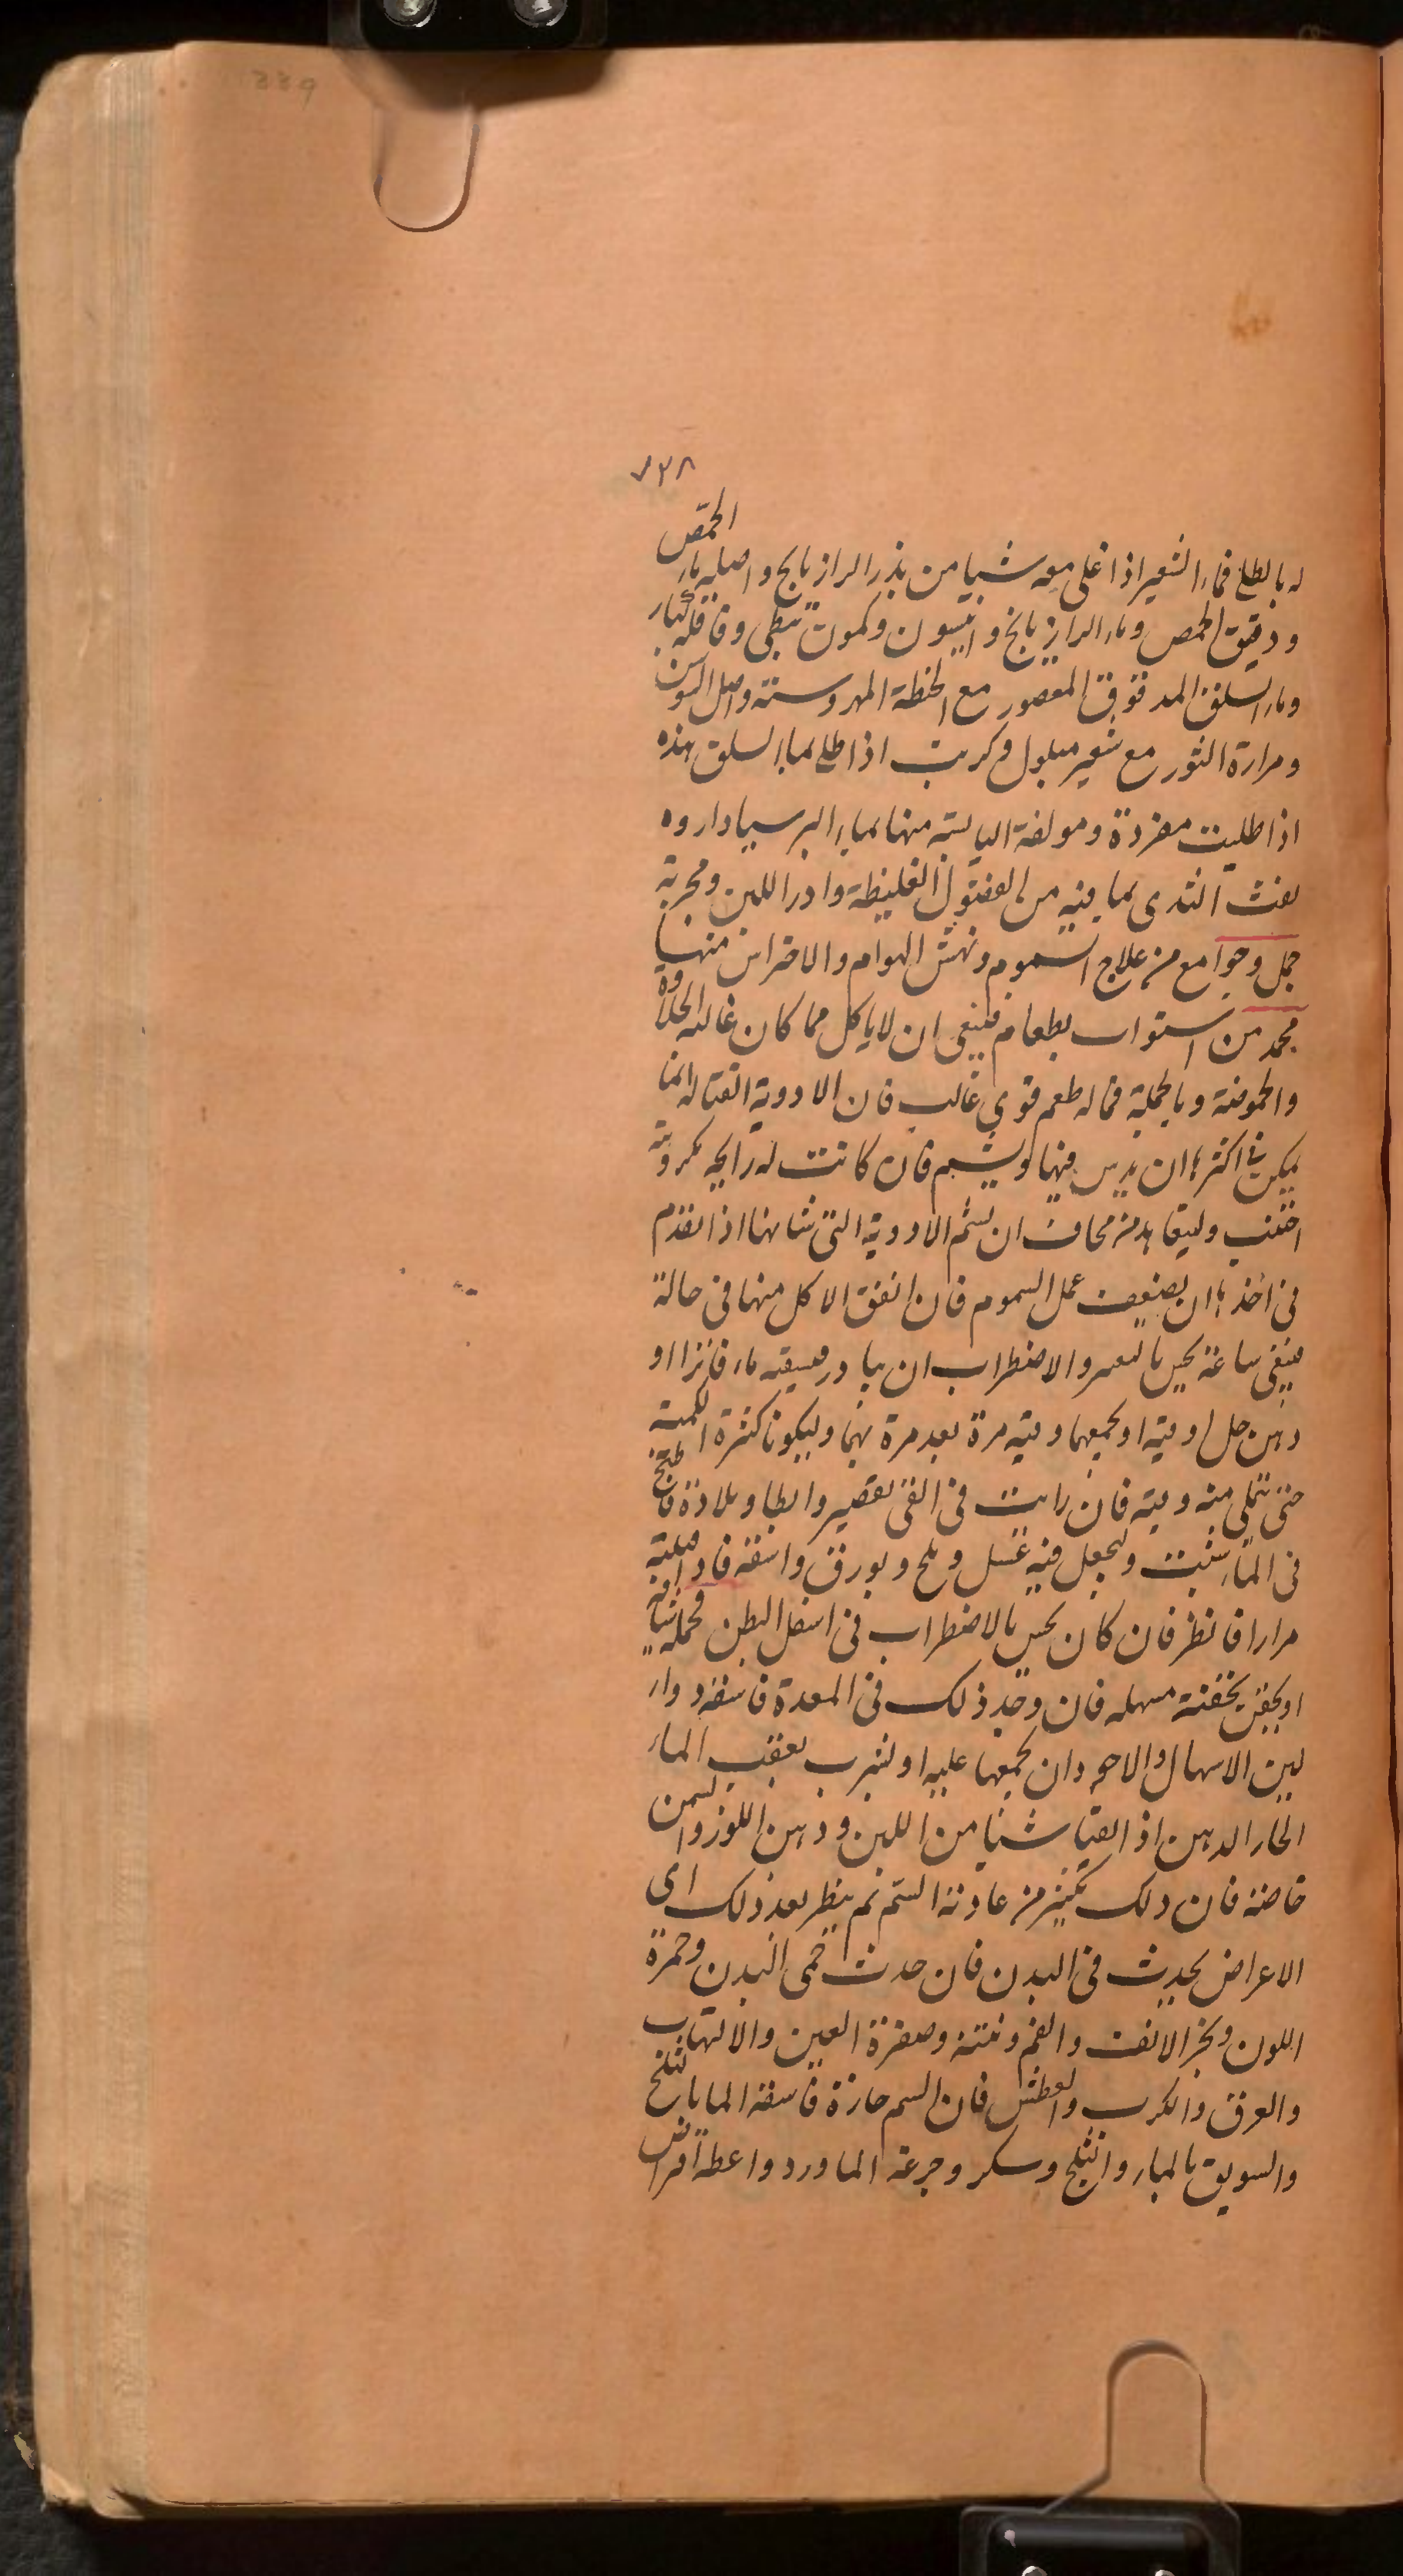 339
٧٢٨
له بالطلع فماء الشعير اذا غلى معه شيا من بذر الرازيانج واصليه ماء الحمص
ودقيق الحمص وماء الرازيانج وانيسون وكمون نبطى وقاقله كبار
وماء السلق المدقوق المعصور مع الحنطة المهروسة واصل السوسن
ومرارة الثور مع شعير مبلول وكربت اذا طلى بماء السلق هذه
اذا طليت مفردة ومولفة اليابسة منها بماء البرسيادا
الثدى بما فيه من الفضول الغليظة وادر اللبن ومجربة
جمل وجوامع من علاج السموم ونهش الهوام والاحتراس منها
محمد من استراب بطعام فينبغى ان لا ياكل مما كان غالبه الحلاوة
والحموضة وبالجملة فماله طعم قوى غالب فان الادوية القتاله انما
يمكن فى اكثرها ان يدس فيها ويشم فان كانت له رايحه مكروهة
اجتنب وليتعاهد من مخاف ان يسم الادوية التى شانها اذا تقدم
فى اخذها ان يضعف عمل السموم فان اتفق الاكل منها فى حالة
فينبغى ساعة يحس بالتغير والاضطراب ان يبادر فيسقيه ماء فاترا او
دهن حل وقيه او يجمعهما وقيه مرة بعد مرة بهما وليكونا كثيرة الكمية
حتى تمتلى منه وقيه فان رايت فى القى تقصير وابطا وبلادة فاطبخ
فى الماء شبت وليجعل فيه عسل وملح وبورق واسقه فاذا قيئته
مرارا فانظر فان كان يحس بالاضطراب فى اسفل البطن فحمله شيافة
او يحقن بحقنة مسهله فان وجد ذلك فى المعدة فاسقه دواء
لين الاسهال والاجود ان يجمعها عليه او ليشرب بعقب الماء
الحار الدهن اذا تقيا شيا من اللبن ودهن اللوز والسمن
خاصة فان ذلك يكسر من عادية السم ثم ينظر بعد ذلك اى
الاعراض يحدث فى البدن فان حدث حمى البدن وحمرة
اللون وبخر الانف والفم ونتنه وصفرة العين والالتهاب
والعرق والكرب والعطش فان السم حارة فاسقه الماء بالثلج
والسويق بالماء والثلج وسكر وجرعه الماورد واعطه اقراص